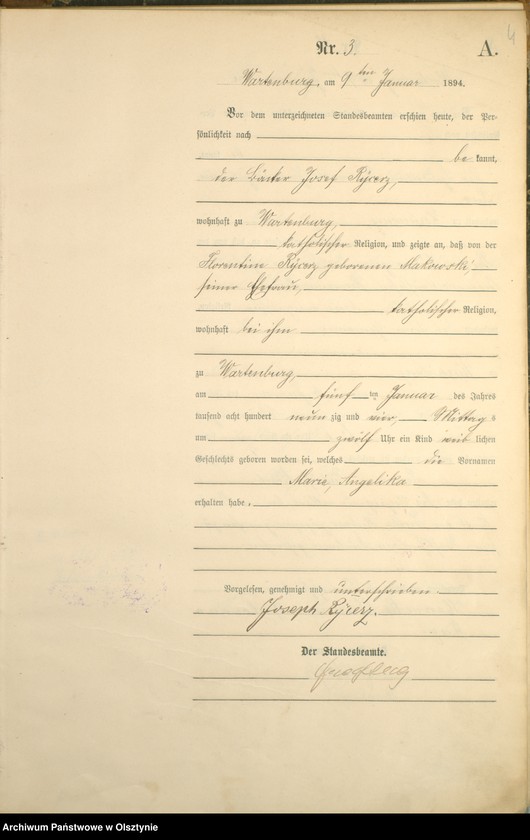 4
Nr. 3. A.
Wartenburg, am 9 ten Januar 1894.
Vor dem unterzeichneten Standesbeamten erschien heute, der Per-
sönlichkeit nach
be kannt,
der Bäcker Josef Rÿcerz,
wohnhaft zu Wartenburg,
katholischer Religion, und zeigte an, daß von der
Florentine Rÿcerz geborenen Makowski,
seiner Ehefrau,
katholischer Religion,
wohnhaft bei ihm
zu Wartenburg,
am fünf ten Januar des Jahres
tausend acht hundert neun zig und vier, Mittag s
um zwölf Uhr ein Kind weib lichen
Geschlechts geboren worden sei, welches die Vornamen
Marie, Angelika
erhalten habe.
Vorgelesen, genehmigt und unterschrieben
Joseph Rÿcerz.
Der Standesbeamte.
Archiwum Państwowe w Olsztynie